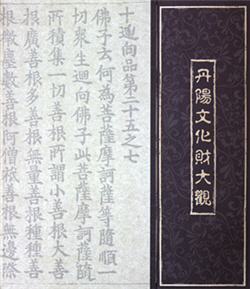 丹陽文化財大觀
十迴向品第二十五之七
佛子云何為菩薩摩訶薩等隨順一
切衆生迴向佛子此菩薩摩訶薩隨
所積集一切善根所謂小善根大善
根廣善根多善根無量善根種種善
根微塵數善根阿僧祇善根無邊際